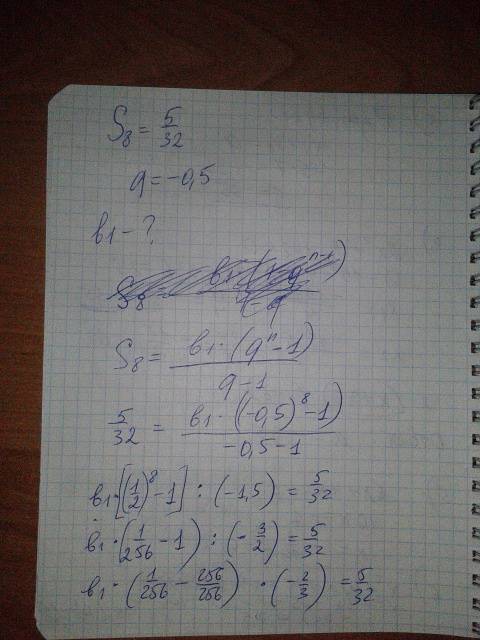 S₈ = 5/32
q = -0,5
в1 - ?
S₈ = в1·(qⁿ-1)/(q-1)
5/32 = в1·((-0,5)⁸-1)/(-0,5-1)
в1·[(1/2)⁸-1] : (-1,5) = 5/32
в1·(1/256 - 1) : (-3/2) = 5/32
в1·(1/256 - 256/256) · (-2/3) = 5/32